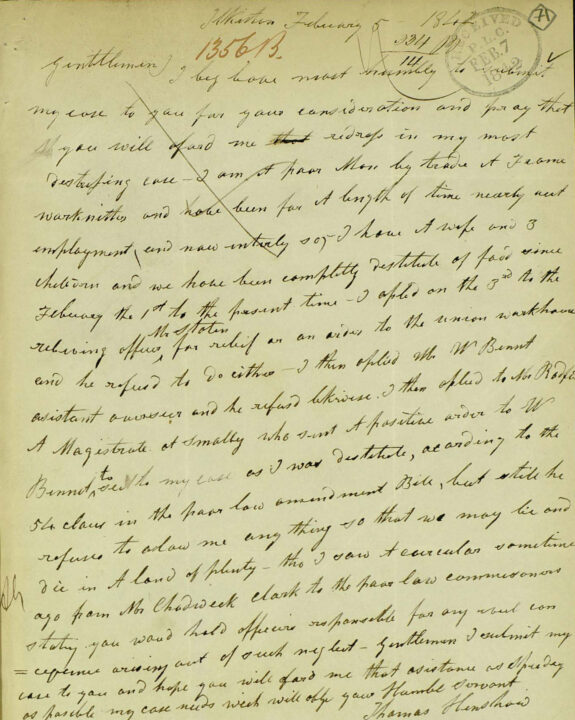 Ilkiston Febuary 5 1842
1356 B.
334
14
RECEIVED
P.L.C.
FEB. 7
1842
71
Gentlemen I beg leave most humbly to submit
my case to you for your consideration and pray that
you will aford me that redress in my most
destressing case – I am A poor Man by trade A Frame
worknitter and have been for A length of time nearly out
employment, and now intirely so, I have A wife and 3
children and we have been completly destitute of food since
Febuary the 1st to the present time – I aplied on the 3rd to the
releiving officer, Mr Staten for releif or an order to the union workhouse
and he refusd to do either – I then aplied Mr W Bennt
asistant overseer and he refusd likewise. I then aplied to Mr Radf
A Magistrate at Smalley who sent A positive order to W
Bennet, to see to my case as I was destitute, acording to the
54 claus in the poor law amendment Bill, but still he
refuses to alow me any thing so that we may lie and
die in A land of plenty – tho I saw A curcular sometime
ago from Mr Chadweck Clark to the poor law commisoners
stating you woud hold officers responsable for any evil con
= cequence arising out of such neglect – Gentlemen I submit my
case to you and hope you will aford me that asistance as speeday
as posible my case needs wich will oblige your Humble servant
Thomas Henshaw